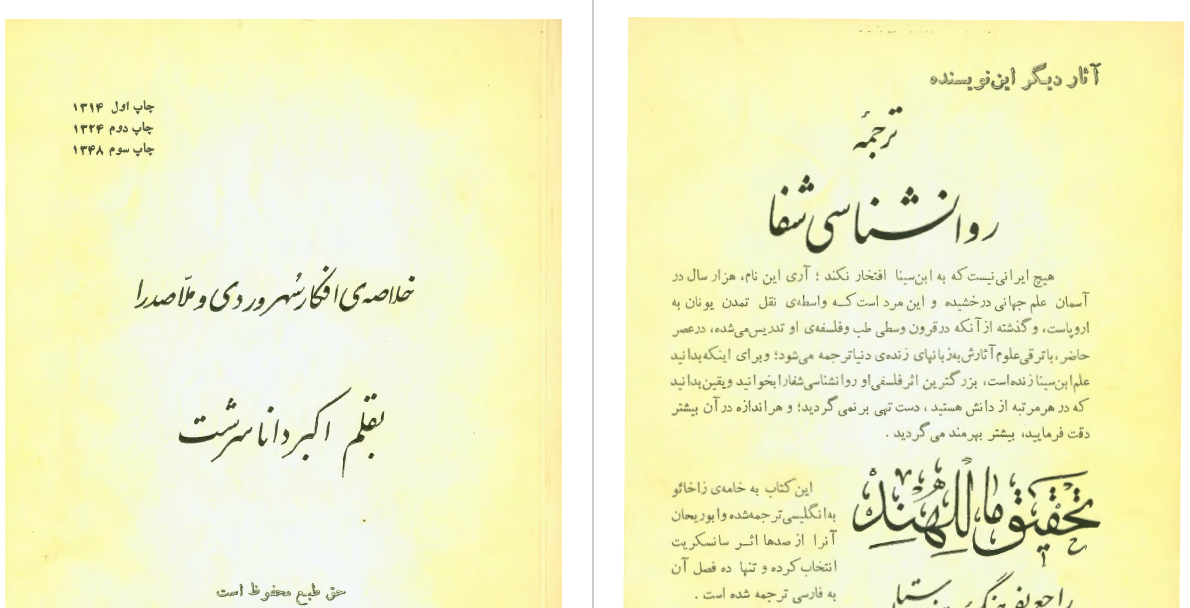 چاپ اول ۱۳۱۴
چاپ دوم ۱۳۲۴
چاپ سوم ۱۳۴۸
خلاصه‌ی افکار سُهروردی و ملّاصدرا
بقلم اکبر داناسرشت
حق طبع محفوظ است
آثار دیگر این نویسنده
ترجمهٔ
روانشناسی شفا
هیچ ایرانی نیست که به ابن‌سینا افتخار نکند ؛ آری این نام، هزار سال در
آسمان علم جهانی درخشیده و این مرد است کــه واسطه‌ی نقل تمدن یونان به
اروپاست، و گذشته از آنکه درقرون وسطی طب وفلسفه‌ی او تدریس می‌شده، درعصر
حاضر، باترقی علوم آثارش به‌زبانهای زنده‌ی دنیا ترجمه می‌شود؛ وبرای اینکه بدانید
علم ابن‌سینا زنده است، بزرگترین اثر فلسفی او روانشناسی شفا را بخوانید ویقین بدانید
که در هر مرتبه از دانش هستید ، دست تهی برنمی گردید؛ و هر اندازه درآن بیشتر
دقت فرمایید، بیشتر بهرمند می گردید .
تحقیق ما للهند
این کتاب به خامه‌ی زاخائو
به‌انگلیسی ترجمه‌شده وابوریحان
آنرا از صدها اثــر سانسکریت
انتخاب کرده و تنها ده فصل آن
به فارسی ترجمه شده است .